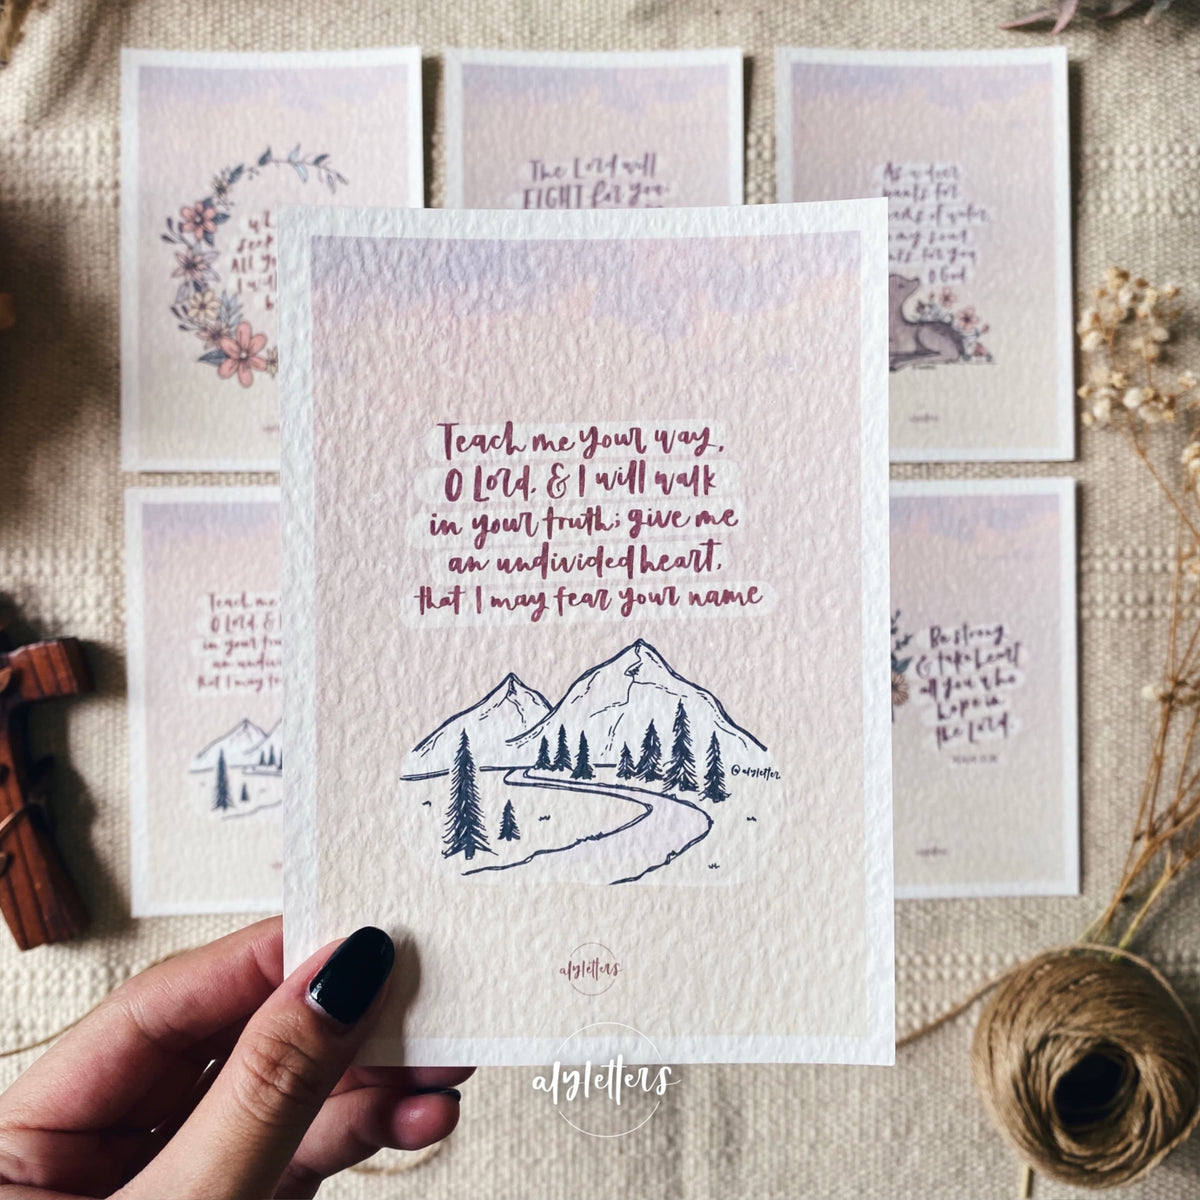 The Lord will
FIGHT for you;
As a deer
pants for
of water
my soul
for you
O God
seek
All
I will
Teach me your way,
O Lord, & I will walk
in your truth; give me
an undivided heart,
that I may fear your name
@alyletters
alyletters
alyletters
Teach me
O Lord, &
in your
an
that I may
Be strong
& take heart
all you who
hope in
the Lord